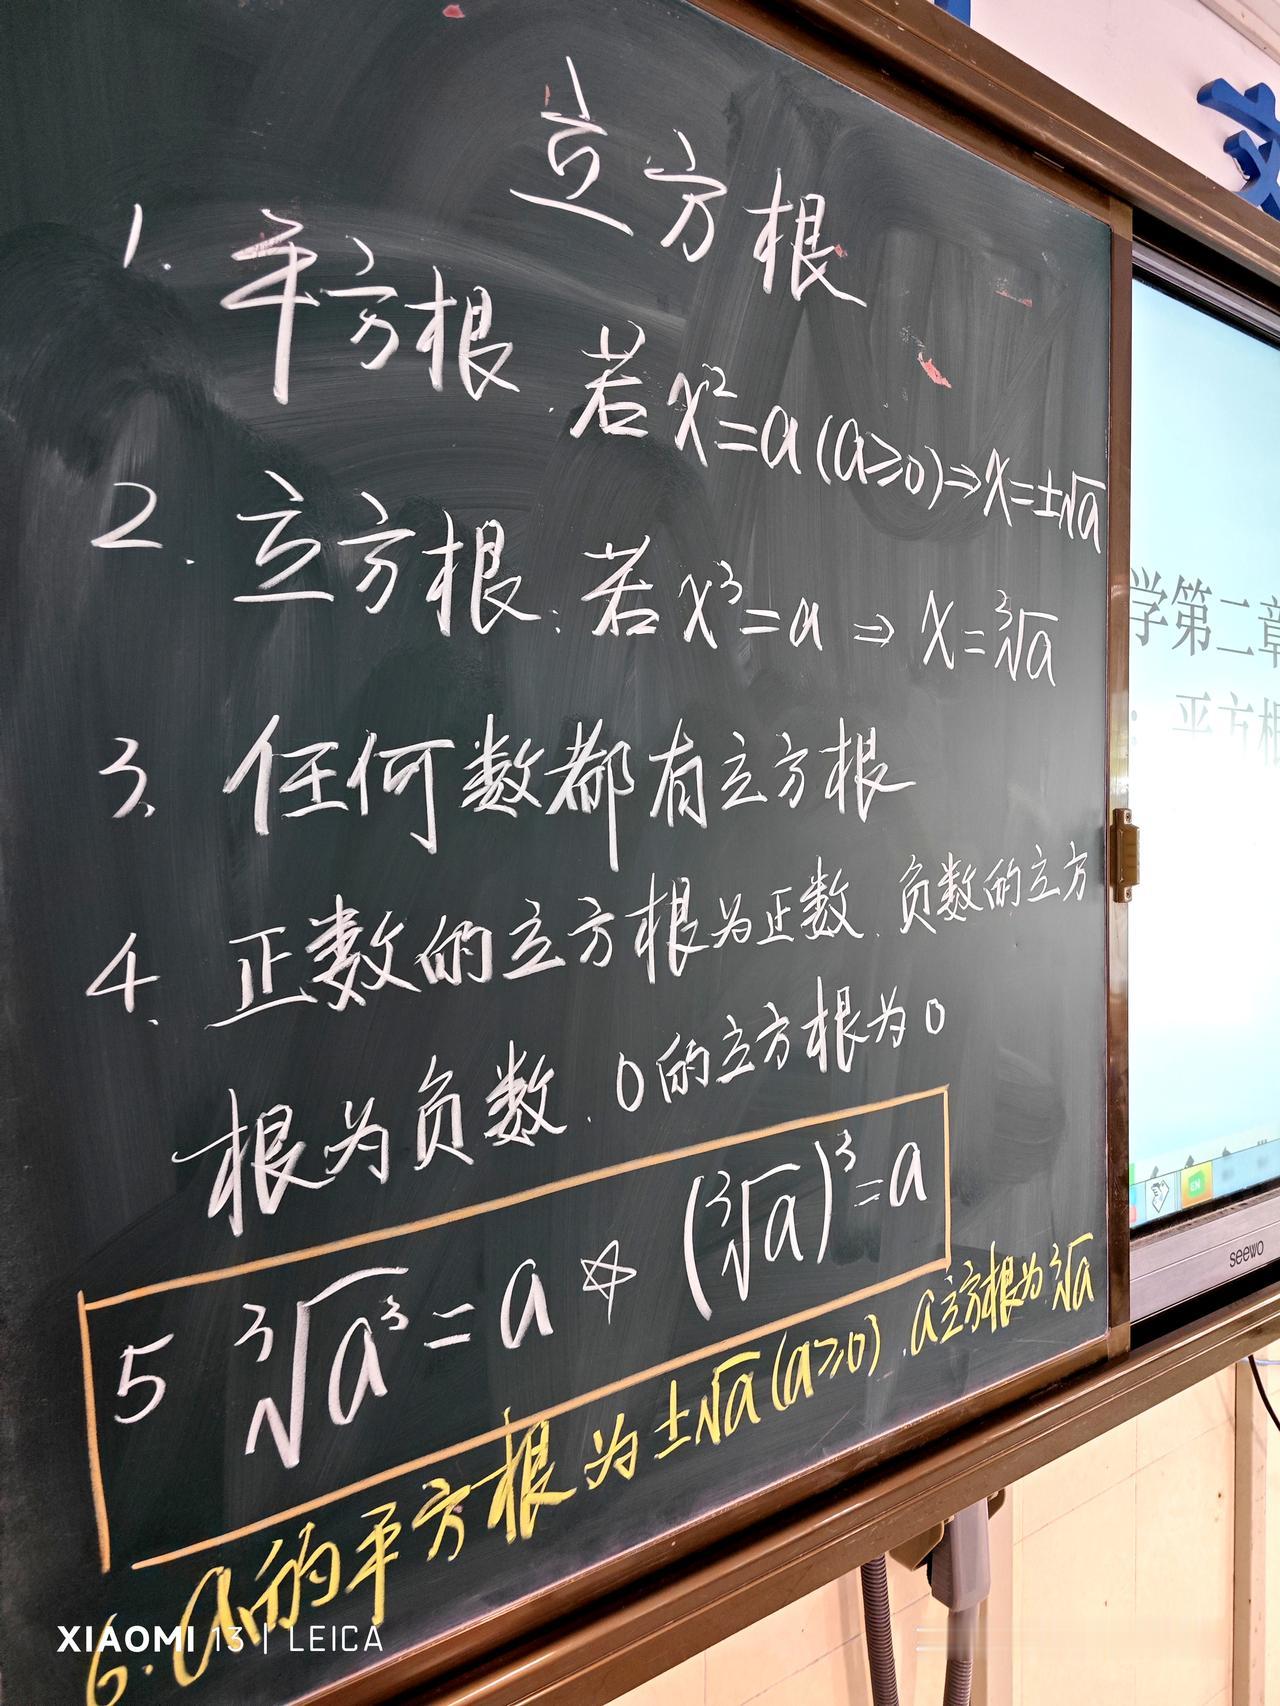 立方根
1. 平方根. 若x²=a(a≥0)⇒x=±√a
2. 立方根: 若x³=a ⇒ x=∛a
3. 任何数都有立方根
4. 正数的立方根为正数. 负数的立方
根为负数. 0的立方根为0
5 ∛a³=a ☆ (∛a)³=a
6. a的平方根为±√a(a≥0). a立方根为∛a
学第二章
: 平方根
EN
seewo
XIAOMI 13 | LEICA